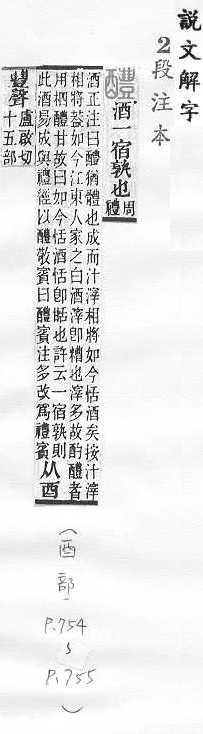 說文解字
2段注本
醴 酒一宿孰也 周禮
酒正注曰醴猶體也成而汁滓相將如今恬酒矣按汁滓
相將葢如今江東人家之白酒滓卽糟也滓多故酌醴者
用柶醴甘故曰如今恬酒恬卽甛也許云一宿孰則
此酒易成與禮經以醴敬賓曰醴賓注多改爲禮賓 从酉
豊聲 盧啟切
十五部
(酉部,
P.754
~
P.755
)